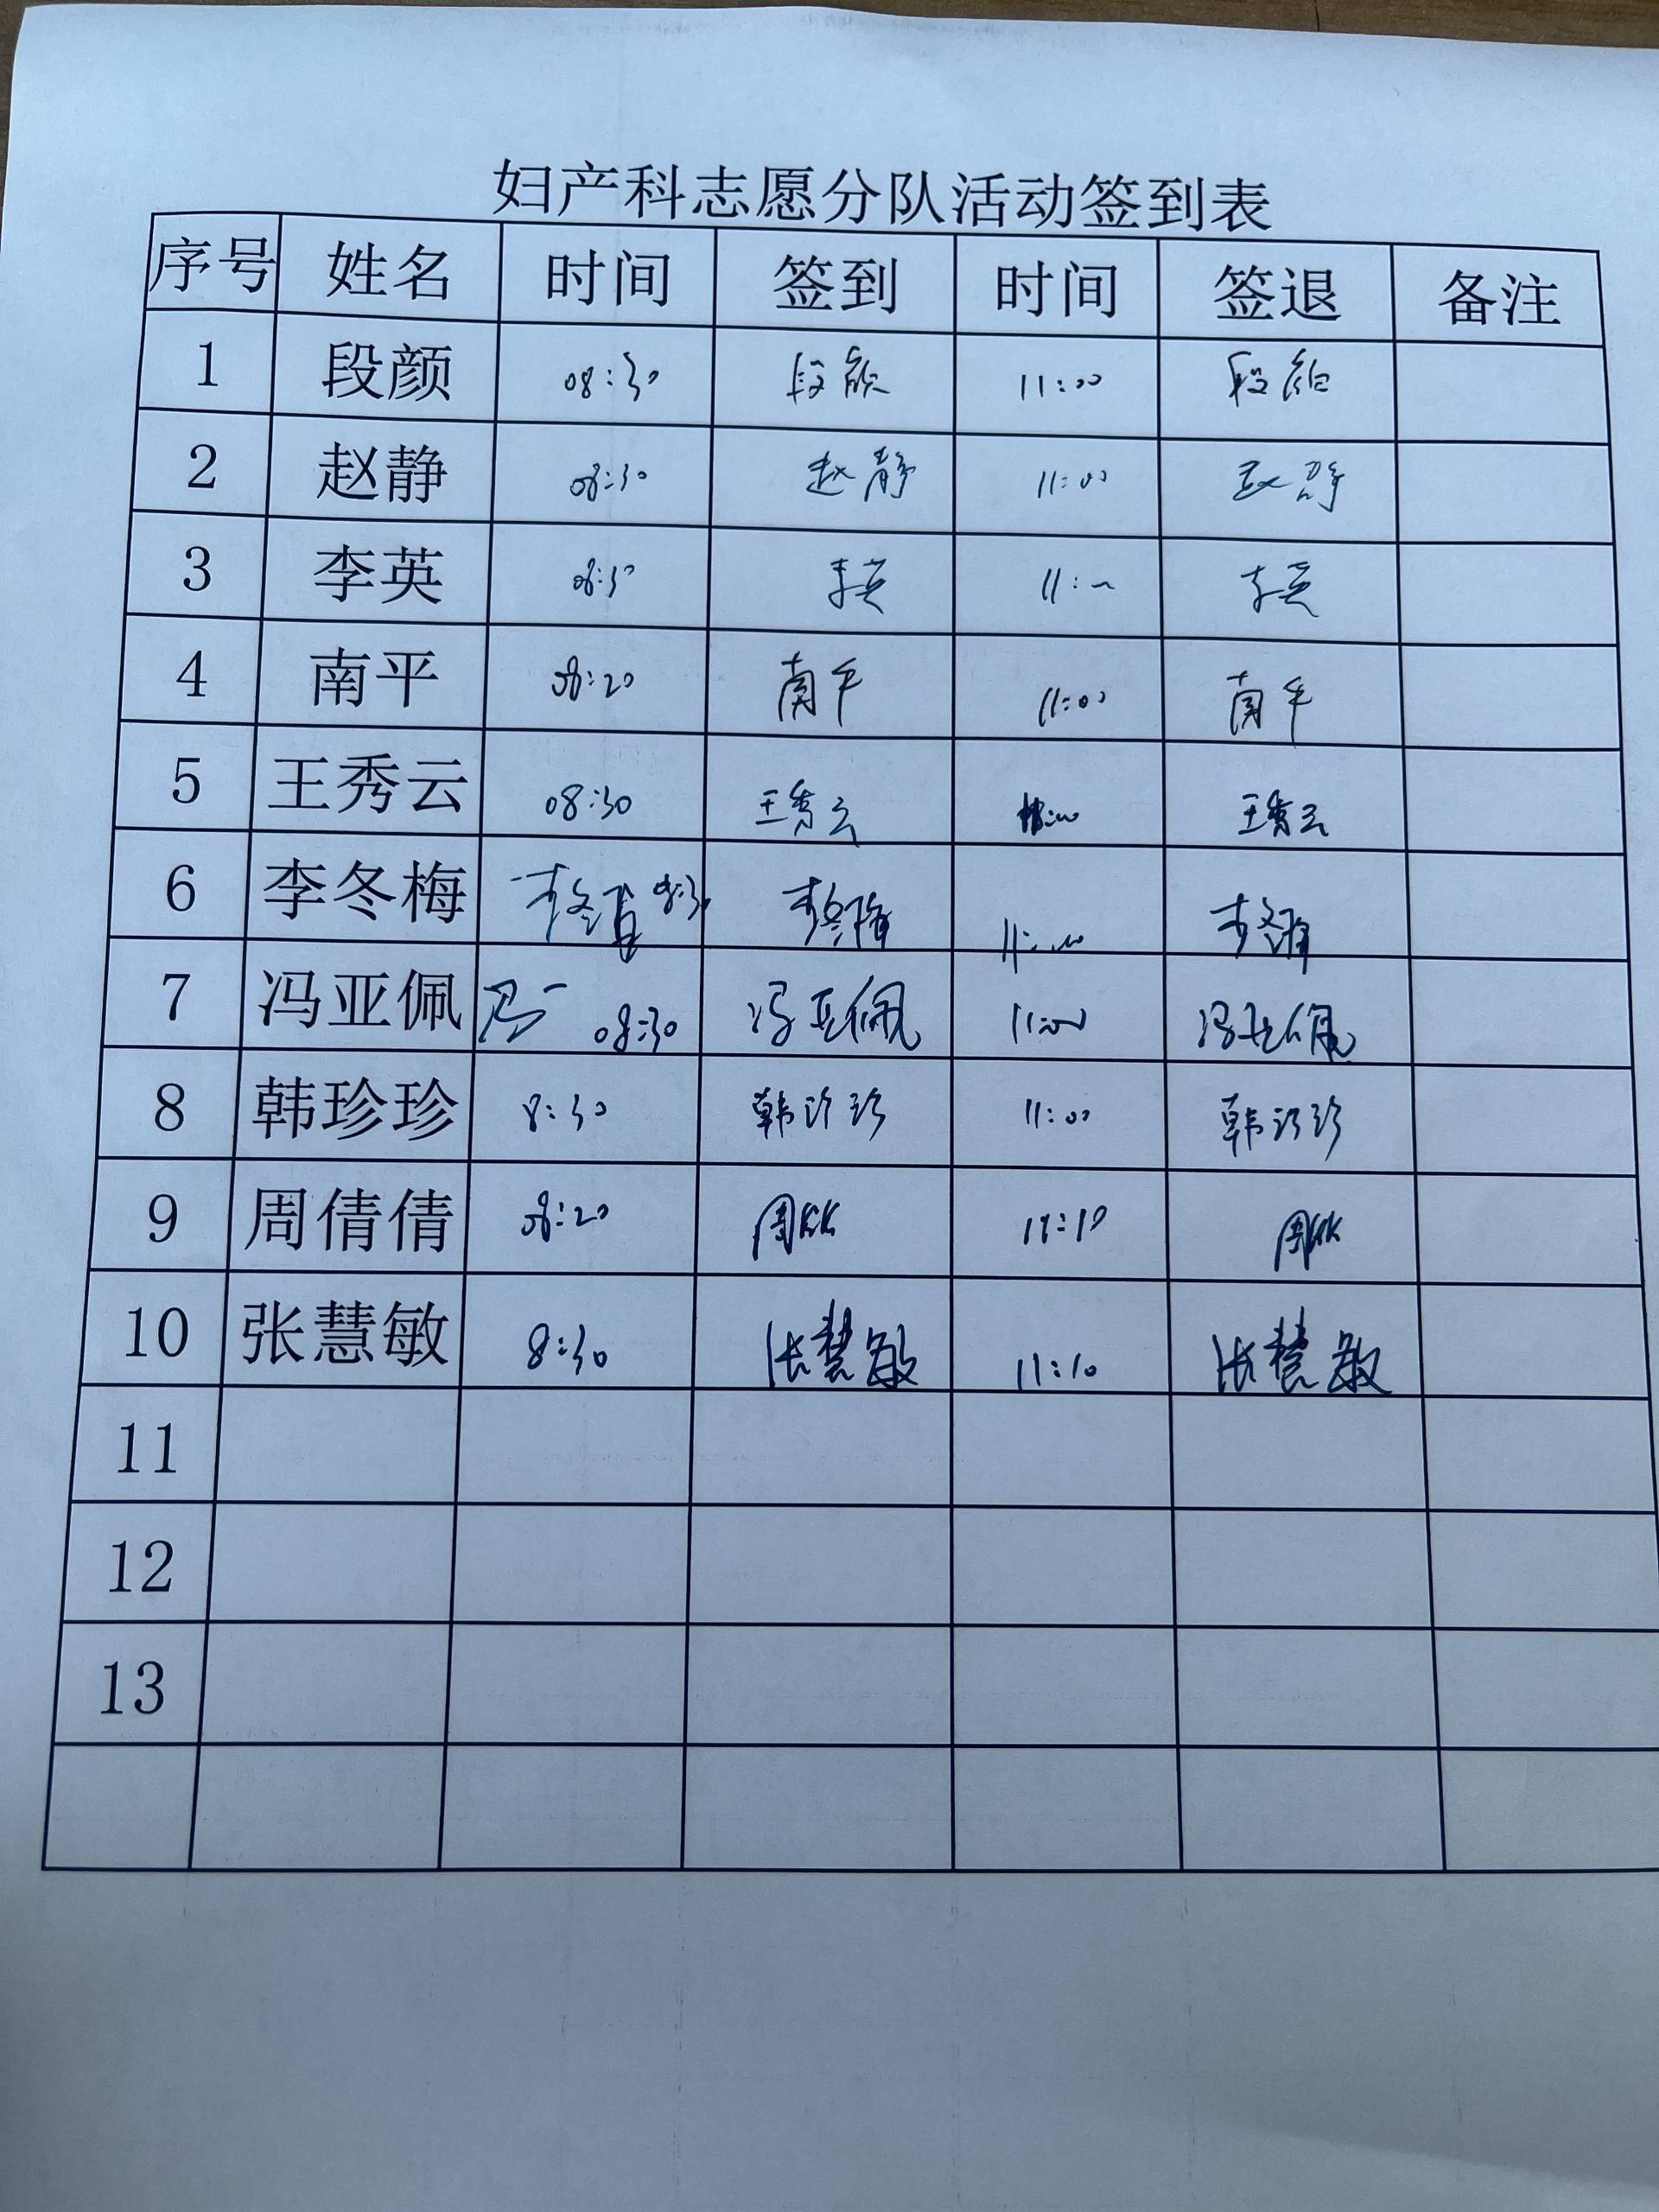 妇产科志愿分队活动签到表
序号 姓名 时间 签到 时间 签退 备注
1 段颜 08:30 段颜 11:00 段颜
2 赵静 08:30 赵静 11:00 赵静
3 李英 08:30 李英 11:00 李英
4 南平 08:20 南平 11:00 南平
5 王秀云 08:30 王秀云 11:00 王秀云
6 李冬梅 李冬 08:30 李冬梅 11:00 李冬梅
7 冯亚佩 冯 08:30 冯亚佩 11:00 冯亚佩
8 韩珍珍 8:30 韩珍珍 11:00 韩珍珍
9 周倩倩 08:20 周倩倩 11:10 周倩倩
10 张慧敏 8:30 张慧敏 11:10 张慧敏
11
12
13